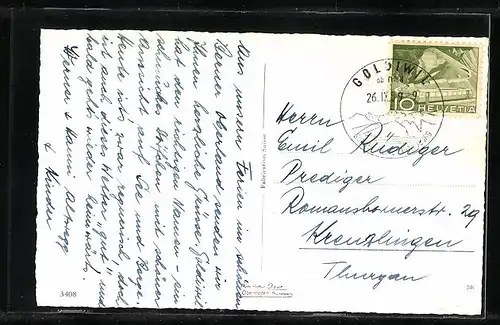 Aus unseren Ferien im schönen
Berner Oberland senden wir
Ihnen herzliche Grüsse. Goldiwil
hat den richtigen Namen - ein
schmuckes Dörfchen mit schöner
Aussicht auf See und Berge.
Heute ist's zwar regnerisch, doch
ist auch dieses Wetter "gut" und
bald geht's wieder heimwärts.
Werner & Hanni
& Kinder
3408
Fabrication Suisse
GOLDIWIL
26.IX.
HELVETIA
10
Herrn
Emil Rüdiger
Prediger
Romanshornerstr. 29
Kreuzlingen
Thurgau